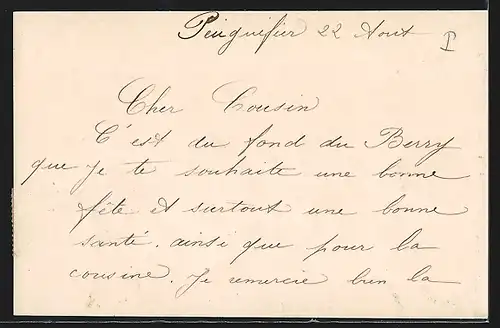 22 Aout P
Cher Cousin
C'est du fond du Berry
que je te souhaite une bonne
fête et surtout une bonne
santé. ainsi que pour la
cousine. Je remercie bien la